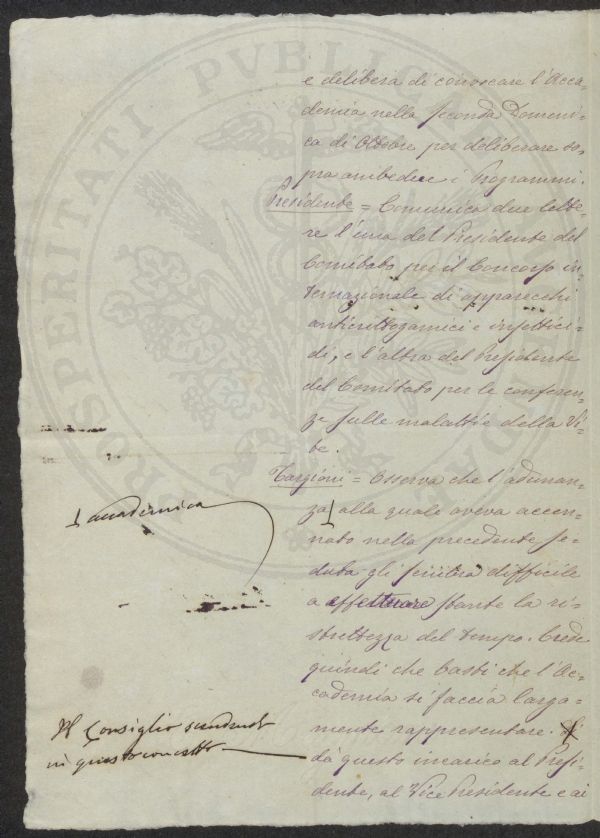 e delibera di convocare l'Acca=
demia nella seconda Domeni=
ca di Ottobre per deliberare so=
pra ambedue i Programmi.
Presidente = Comunica due lette=
re l'una del Presidente del
Comitato per il Concorso in=
ternazionale di apparecchi
anticrittogamici e insettici=
di, e l'altra del Presidente
del Comitato per le conferen=
ze sulle malattie della Vi=
te.
Targioni = Osserva che l'adunan=
za alla quale aveva accen=
nato nella precedente se=
duta gli sembra difficile
a effettuare stante la ri=
strettezza del tempo. Crede
quindi che basti che l'Ac=
cademia si faccia larga=
mente rappresentare.
dà questo incarico al Presi=
dente, al Vice Presidente e ai
accademica
Il Consiglio
in questo concetto
PROSPERITATI PVBLICAE